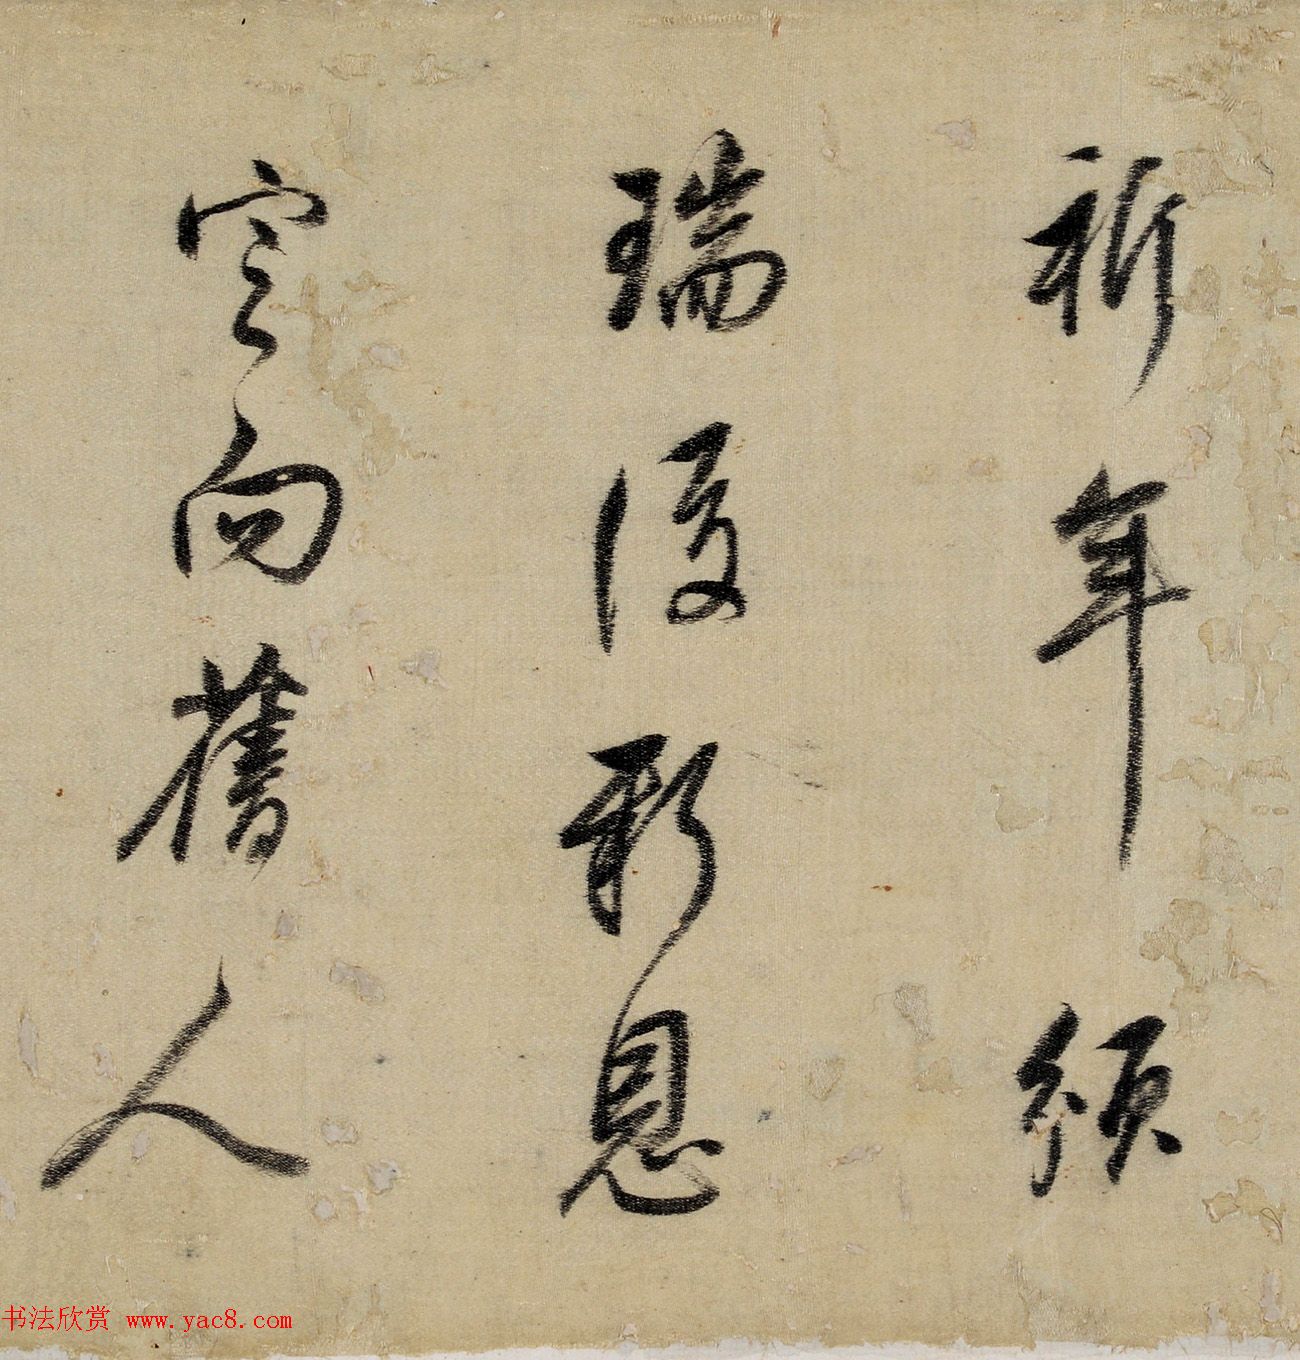 祈年頒
瑞後新恩
定向舊人
书法欣赏 www.yac8.com